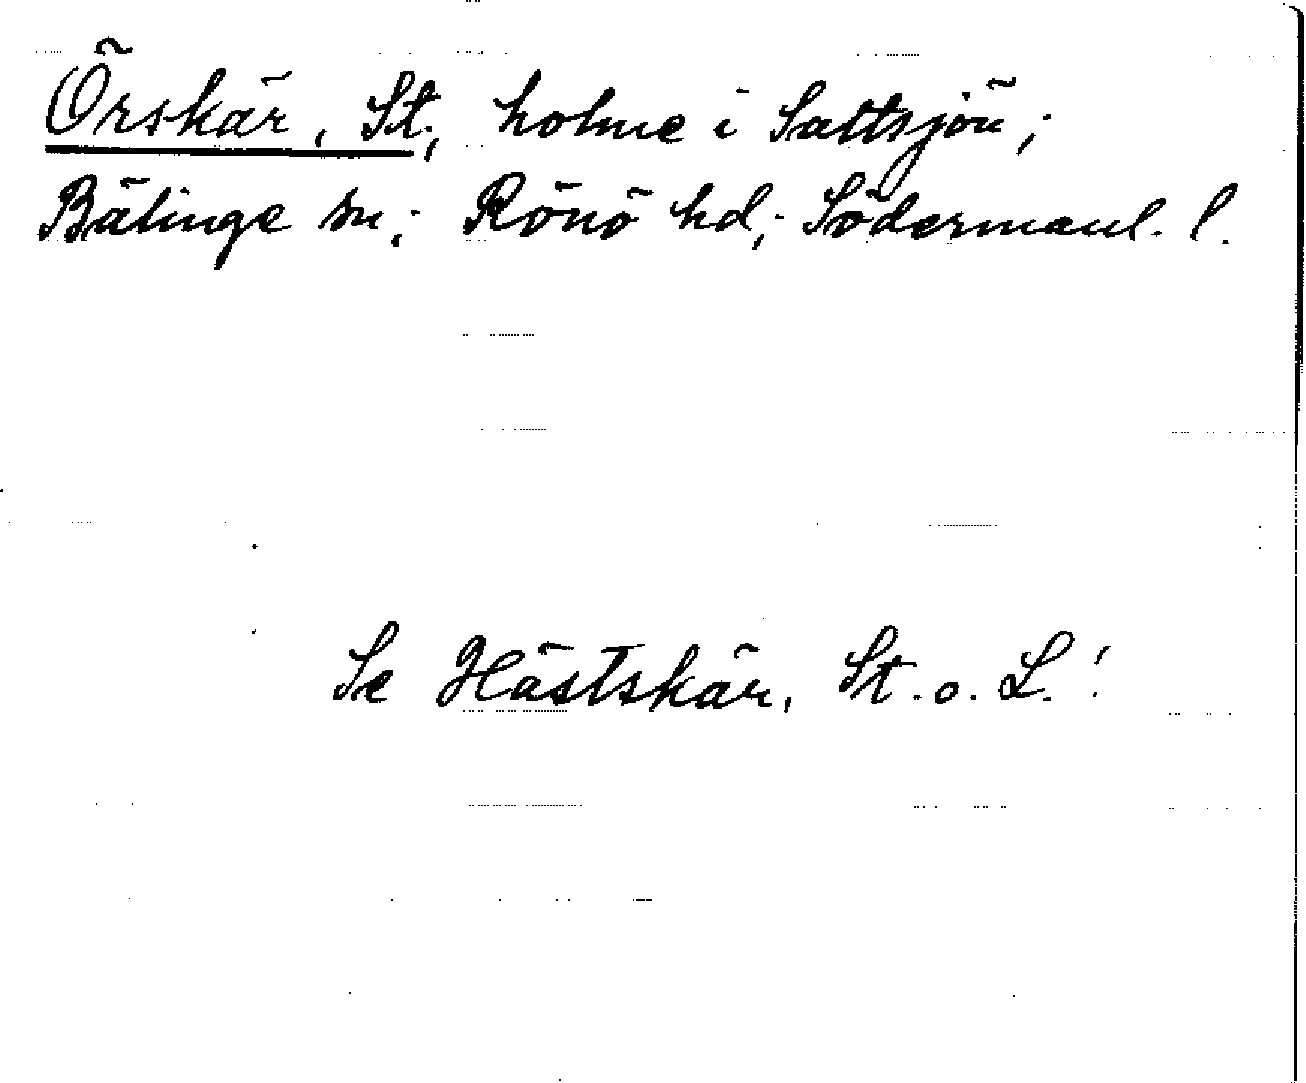 Örskär, St.; holme i Saltsjön;
Bälinge sn; Rönö hd; Södermanl. l.
Se Hästskär, St. o. L.!